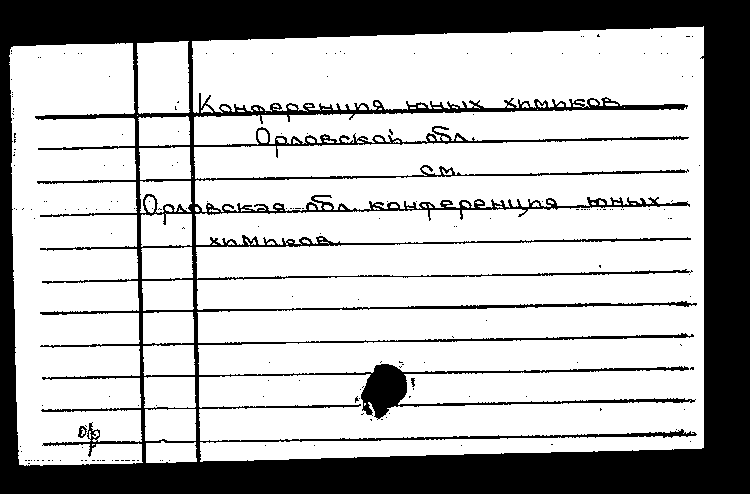 Конференция юных химиков
Орловской обл.
см.
Орловская обл. конференция юных
химиков.